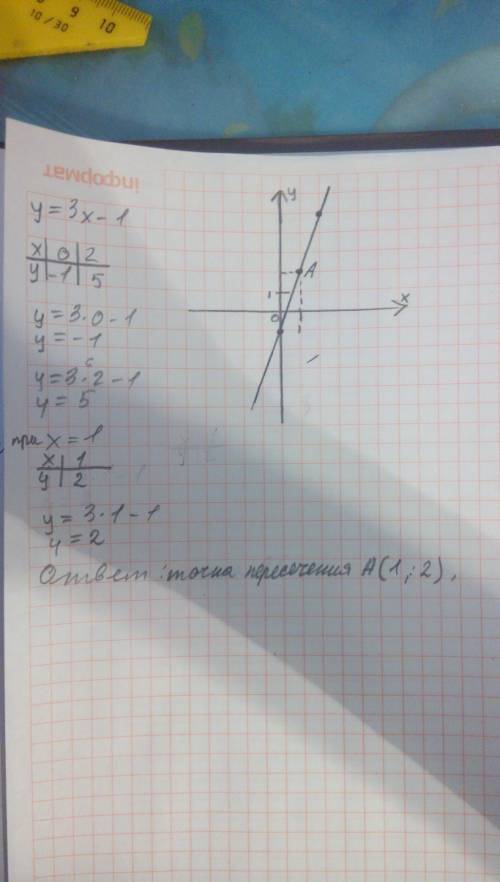 9 10
10 / 30
информат
y = 3x - 1
x | 0 | 2
y | -1 | 5
y = 3·0 - 1
y = -1
6
y = 3·2 - 1
y = 5
при x = 1
x | 1
y | 2
y = 3·1 - 1
y = 2
Ответ: точка пересечения A(1; 2).
y
A
1
0
x